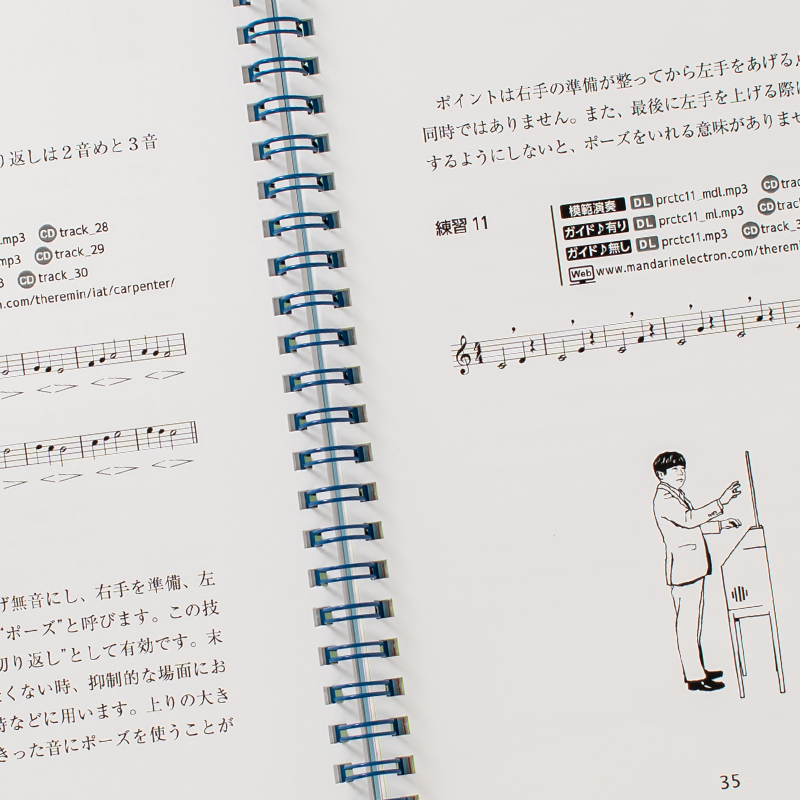 り返しは２音めと３音
.mp3 CD track_28
.mp3 CD track_29
3 CD track_30
n.com/theremin/iat/carpenter/
げ無音にし、右手を準備、左
“ポーズ”と呼びます。この技
切り返し”として有効です。末
くない時、抑制的な場面にお
時などに用います。上りの大き
きった音にポーズを使うことが
ポイントは右手の準備が整ってから左手をあげる
同時ではありません。また、最後に左手を上げる際に
するようにしないと、ポーズをいれる意味がありませ
練習 11
模範演奏 DL prctc11_mdl.mp3 CD track
ガイド♪有り DL prctc11_ml.mp3 CD track
ガイド♪無し DL prctc11.mp3 CD track_3
Web www.mandarinelectron.com/theremi
35